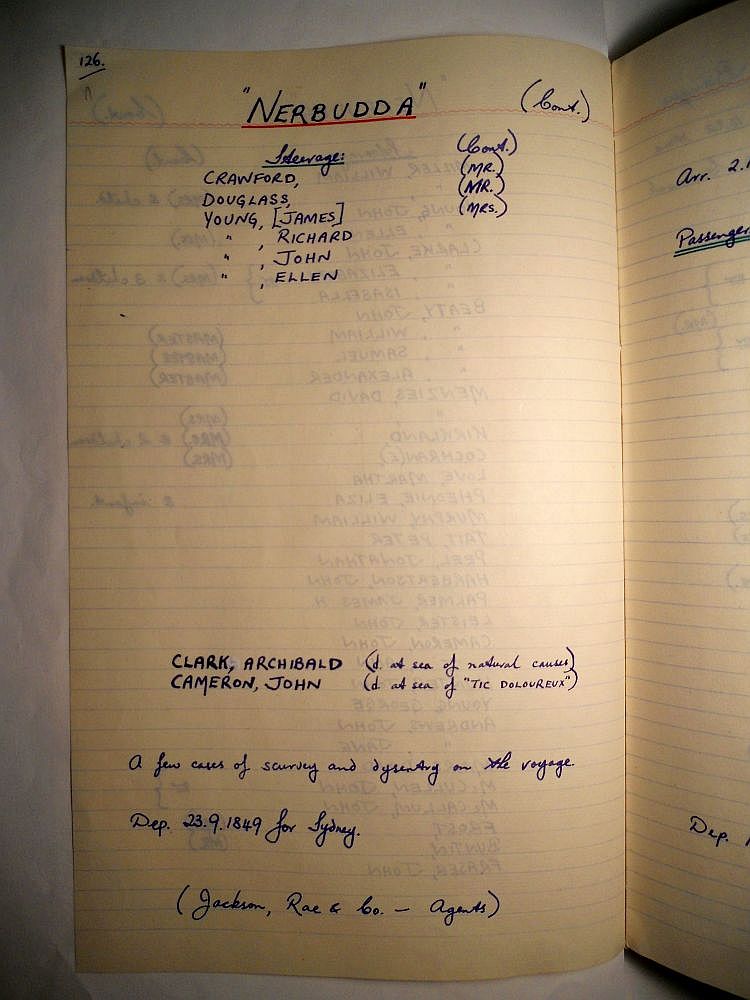 126.
"NERBUDDA" (Cont.)
Steerage: (Cont.)
CRAWFORD, (MR.)
DOUGLASS, (MR.)
YOUNG, [JAMES] (MRS.)
" , RICHARD
" , JOHN
" , ELLEN
CLARK, ARCHIBALD (d. at sea of natural causes)
CAMERON, JOHN (d. at sea of "TIC DOLOUREUX")
A few cases of scurvey and dysentry on the voyage.
Dep. 23.9.1849 for Sydney.
(Jackson, Rae & Co. – Agents)
Arr. 2.
Passenger
Dep.